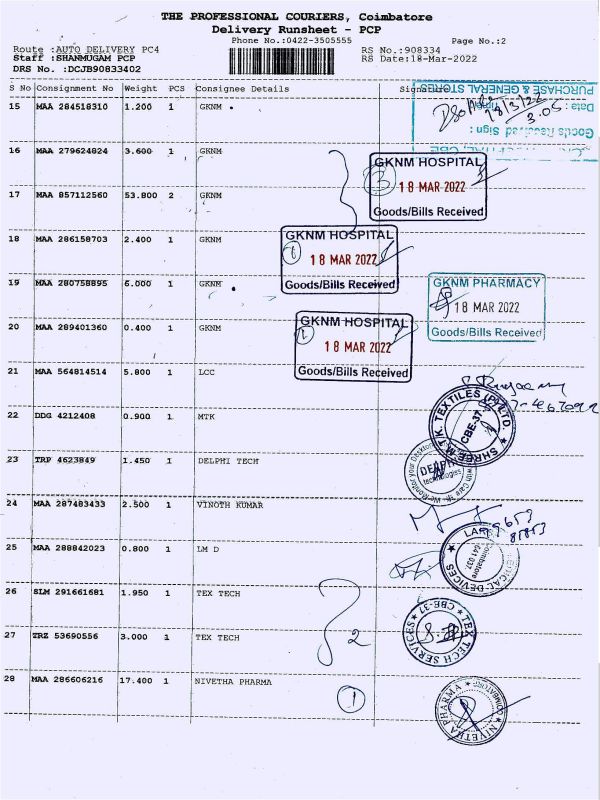 THE PROFESSIONAL COURIERS, Coimbatore
Delivery Runsheet - PCP
Phone No.:0422-3505555
Page No.:2
Route :AUTO DELIVERY PC4
RS No.:908334
Staff :SHANMUGAM PCP
RS Date:18-Mar-2022
DRS No. :DCJB90833402
S No Consignment No Weight PCS Consignee Details Signature
PURCHASE & GENERAL STORES
Date:
18/3/22
3.05
Goods Received Sign :
15 MAA 284518310 1.200 1 GKNM
16 MAA 279624824 3.600 1 GKNM
GKNM HOSPITAL
3
18 MAR 2022
Goods/Bills Received
17 MAA 857112560 53.800 2 GKNM
18 MAA 286158703 2.400 1 GKNM
GKNM HOSPITAL
18 MAR 2022
Goods/Bills Received
19 MAA 280758895 6.000 1 GKNM
GKNM PHARMACY
18 MAR 2022
Goods/Bills Received
20 MAA 289401360 0.400 1 GKNM
GKNM HOSPITAL
18 MAR 2022
Goods/Bills Received
21 MAA 564814514 5.800 1 LCC
22 DDG 4212408 0.900 1 MTK
SHREE M.T.K. TEXTILES (P) LTD.
CBE-37
23 TRP 4623849 1.450 1 DELPHI TECH
DELPHI
technologies
24 MAA 287483433 2.500 1 VINOTH KUMAR
25 MAA 288842023 0.800 1 LM D
MEDICAL DEVICES
Coimbatore
641 037.
26 SLM 291661681 1.950 1 TEX TECH
27 TRZ 53690556 3.000 1 TEX TECH
2
TEX TECH SERVICES
CBE-37
28 MAA 286606216 17.400 1 NIVETHA PHARMA
1
NIVETHA PHARMA
COIMBATORE